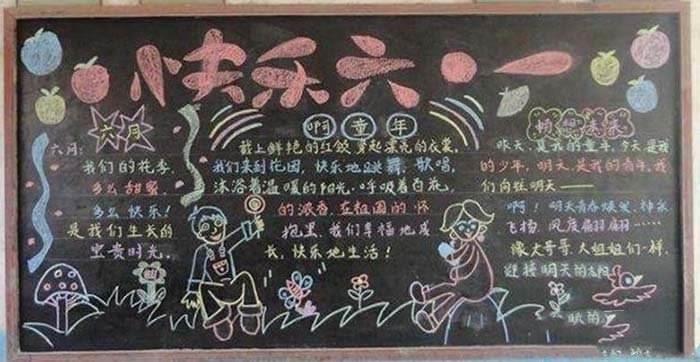 快乐六·一
六月
六月:
我们的花季.
多么甜蜜.
多么快乐!
是我们生长的
宝贵时光.
啊童年
戴上鲜艳的红领 穿起漂亮的衣裳,
我们来到花园, 快乐地跳舞, 歌唱,
沐浴着温暖的阳光, 呼吸着百花,
的浓香. 在祖国的怀
抱里, 我们幸福地成
长, 快乐地生活!
昨天, 是我的童年, 今天是我
的少年, 明天, 是我的青年, 我
们向往明天——
啊! 明天青春焕发, 神采
飞扬, 风度翩翩……
像大哥哥, 大姐姐们一样,
迎接明天的太阳